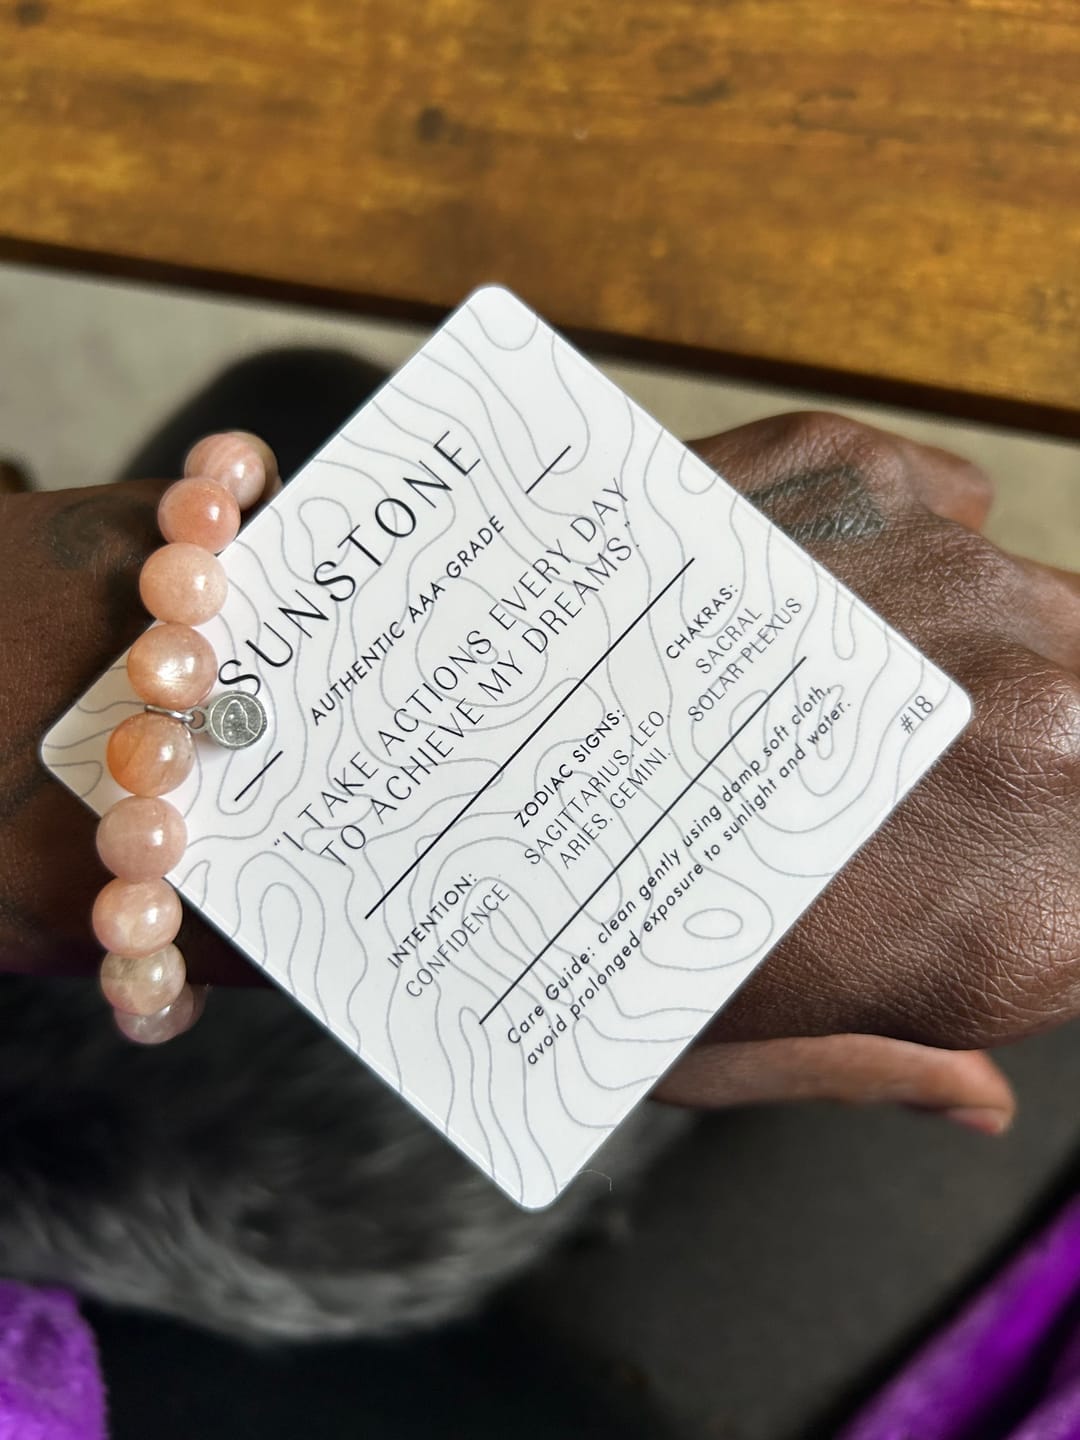 SUNSTONE
AUTHENTIC AAA GRADE
"I TAKE ACTIONS EVERY DAY
TO ACHIEVE MY DREAMS."
INTENTION:
CONFIDENCE
ZODIAC SIGNS:
SAGITTARIUS, LEO
ARIES, GEMINI.
CHAKRAS:
SACRAL
SOLAR PLEXUS
Care Guide: clean gently using damp soft cloth,
avoid prolonged exposure to sunlight and water.
#18